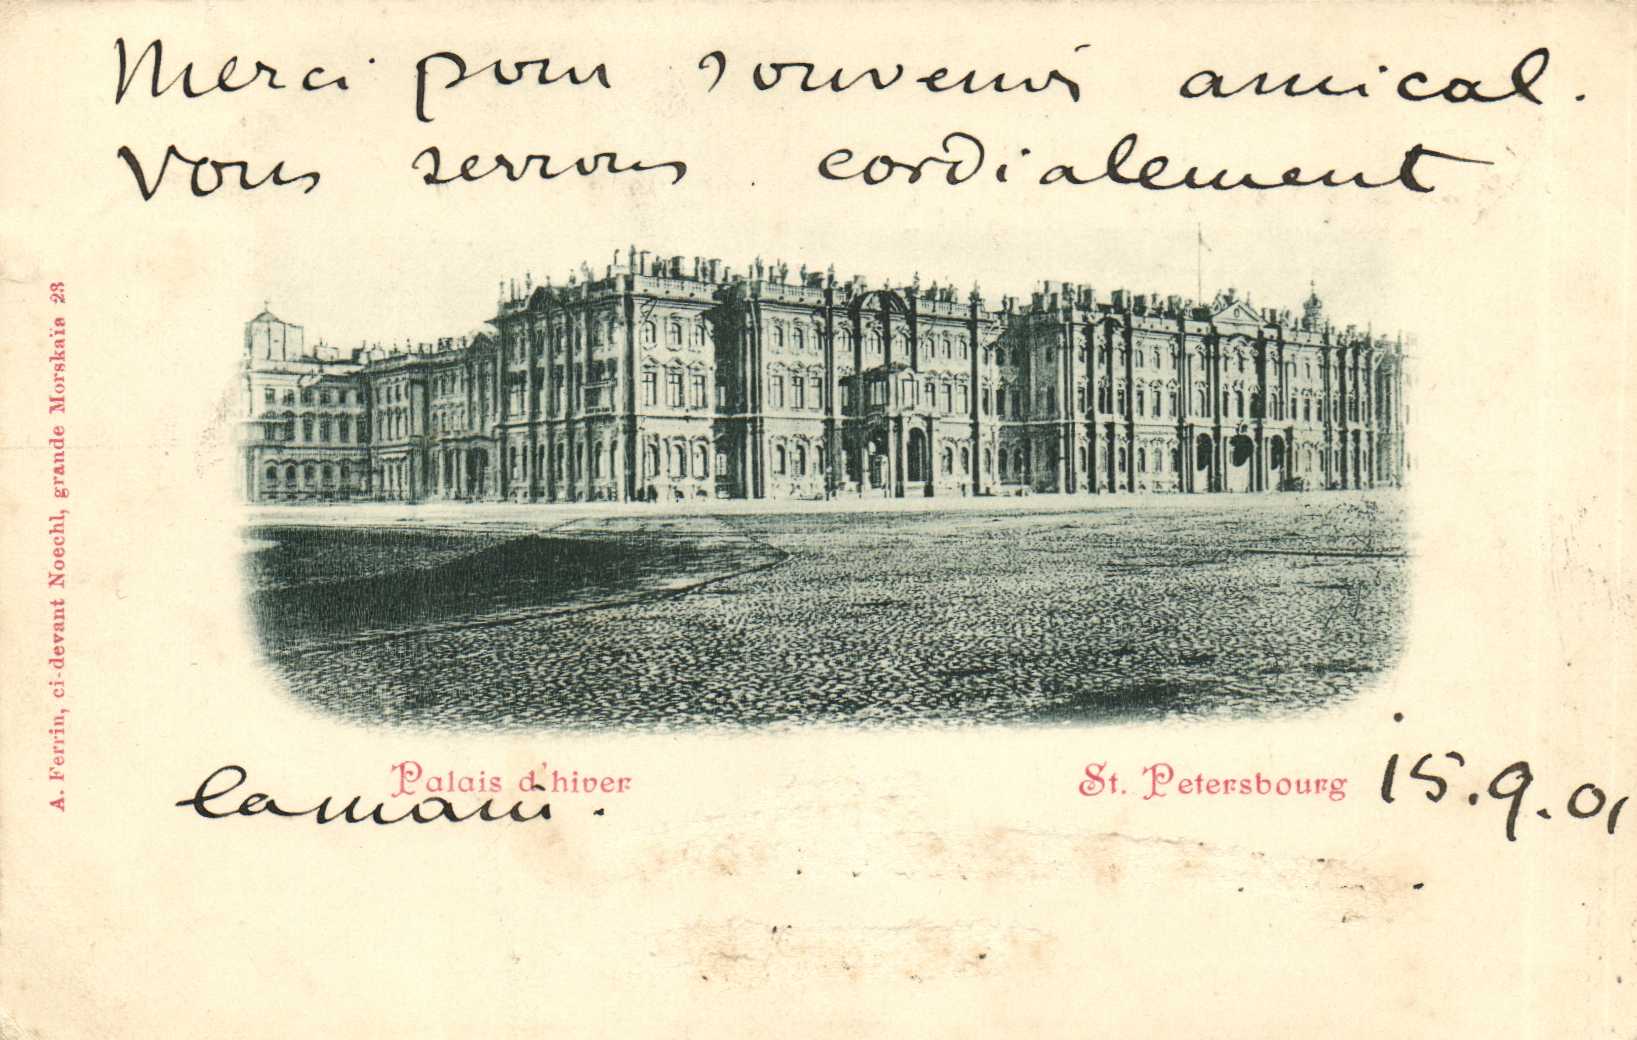 Merci pour souvenir amical.
Vous serrons cordialement
la main.
15.9.01
Palais d'hiver
St. Petersbourg
A. Ferrin, ci-devant Noechl, grande Morskaïa 23